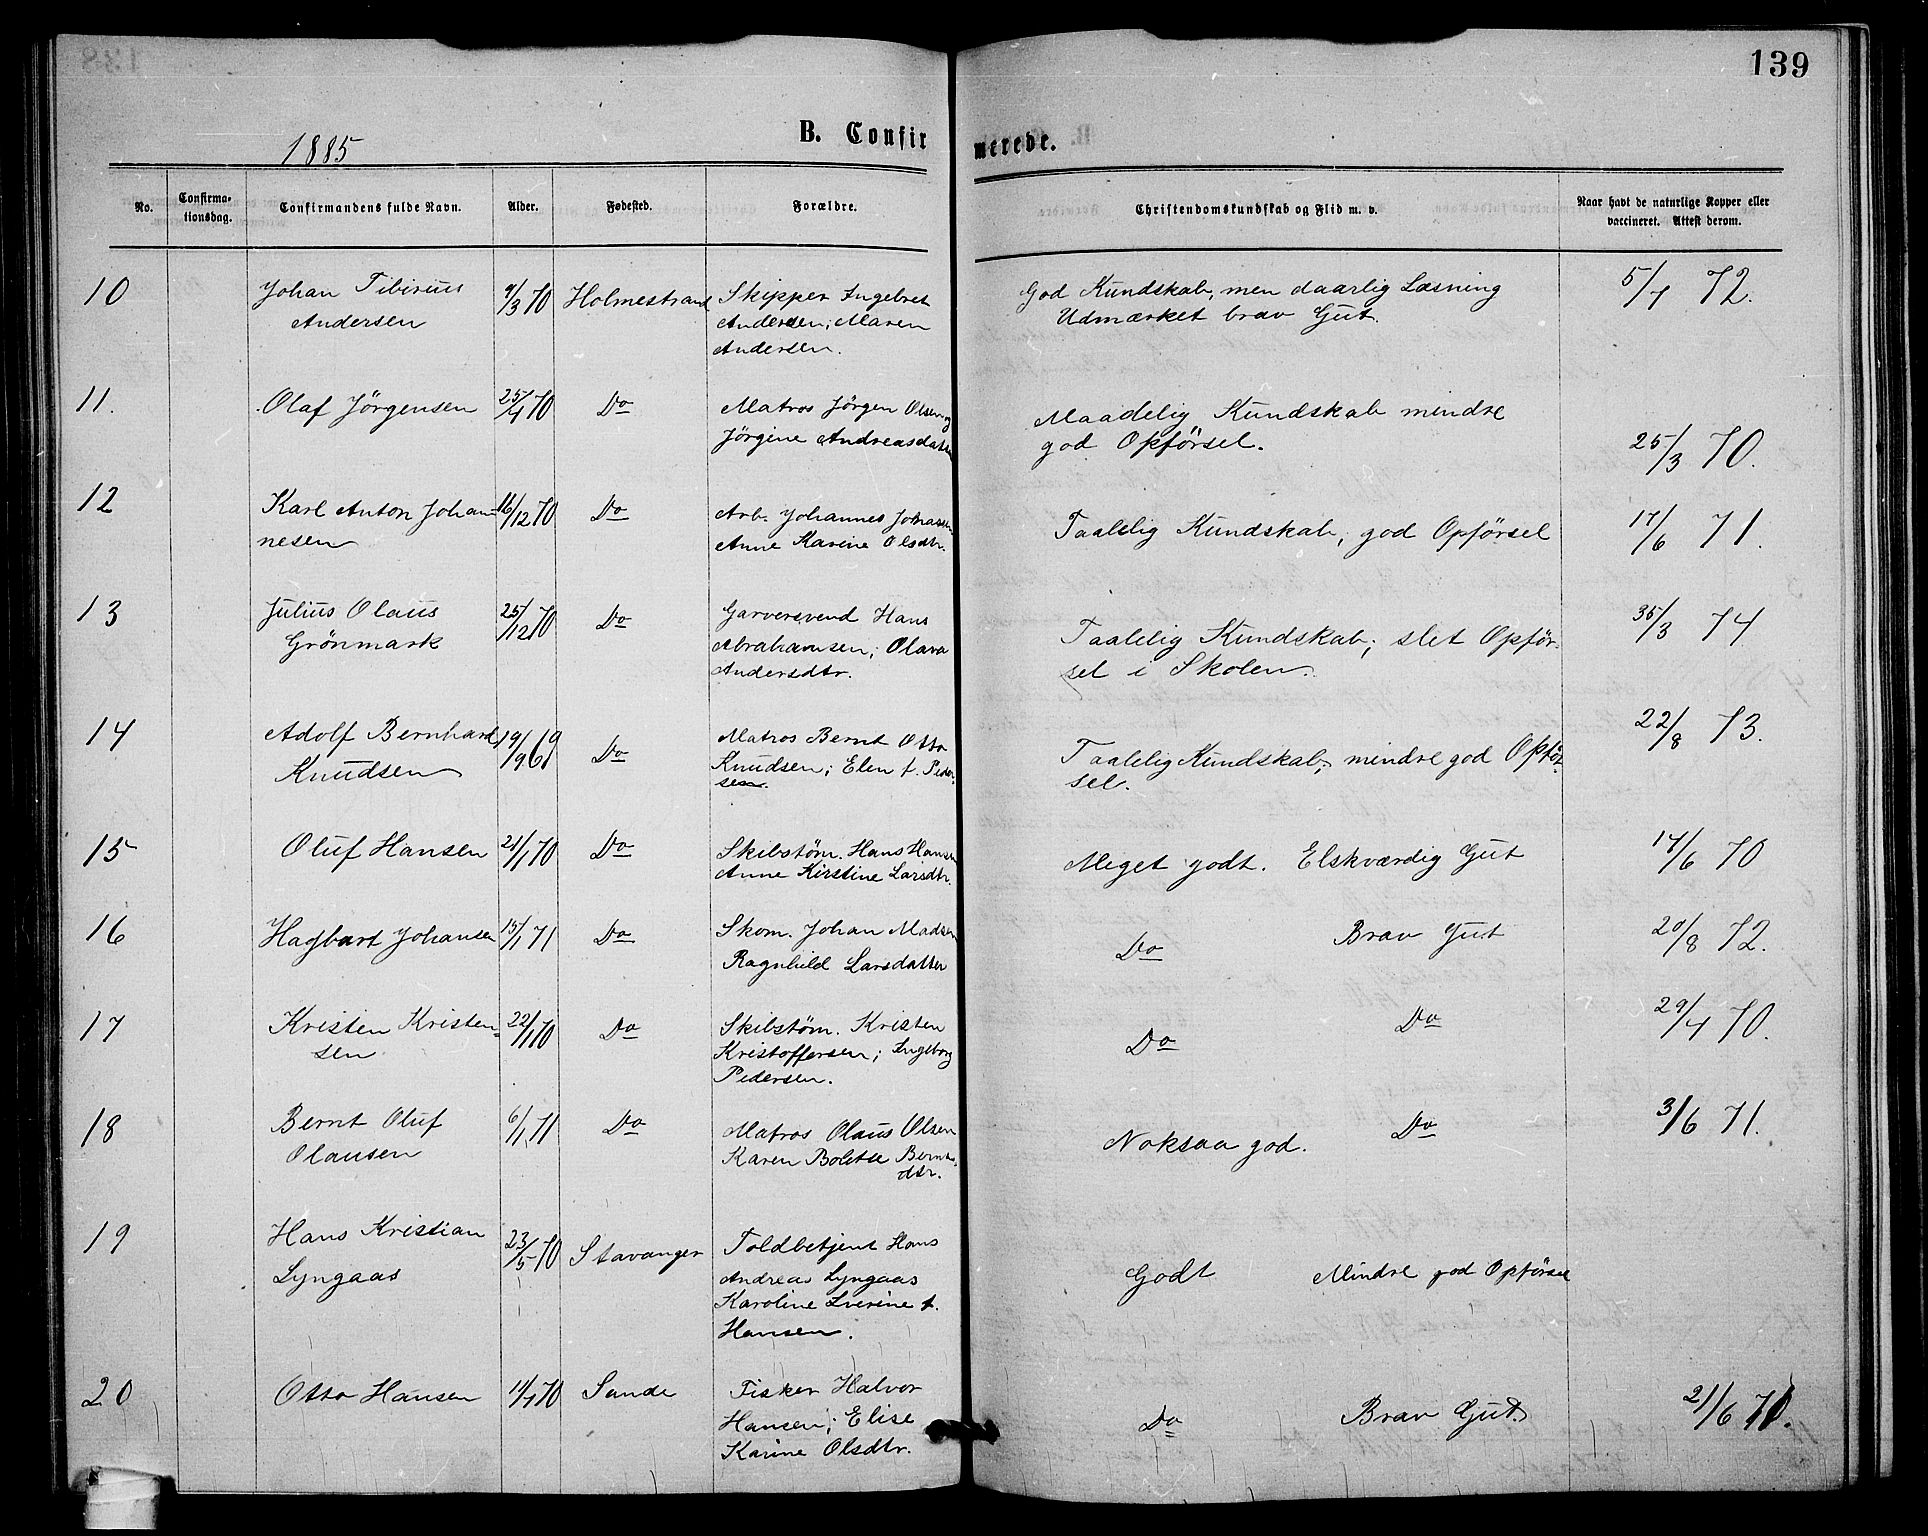 139
1885
B. Confirmerede.
No. Confirmationsdag. Confirmandens fulde Navn. Alder. Fødested. Forældre. Christendomskundskab og Flid m. v. Naar havt de naturlige Kopper eller vaccineret. Attest derom.
10 Johan Tibirius 9/3 70 Holmestrand Skipper Ingebret God Kundskab, men daarlig Læsning 5/7 72.
Andersen Andersen; Maren Udmærket brav Gut.
Andersen.
11. Olaf Jörgensen 25/4 70 Do Matros Jörgen Olsen og Maadelig Kundskab mindre
Jörgine Andreasdatter god Opförsel. 25/3 70.
12 Karl Anton Johan- 16/12 70 Do Arb. Johannes Johansen Taalelig Kundskab, god Opförsel 17/6 71.
nesen Anne Karine Olsdtr.
13 Julius Olaus 25/12 70 Do Garversvend Hans Taalelig Kundskab; slet Opför- 35/3 74
Grönmark Abrahamsen; Olava sel i Skolen.
Andersdtr.
14 Adolf Bernhard 19/9 69 Do Matros Bernt Otto Taalelig Kundskab; mindre god Opför- 22/8 73.
Knudsen Knudsen; Elen f. Peder- sel.
sen.
15 Oluf Hansen 21/1 70 Do Skibstøm. Hans Hansen Meget godt. Elskværdig Gut 17/6 70
Anne Kirstine Larsdtr.
16 Hagbart Johansen 15/1 71 Do Skom. Johan Madsen Do Brav Gut 20/8 72.
Ragnhild Larsdatter
17 Kristen Kristen- 22/1 70 Do Skibstøm. Kristen Do Do 29/7 70.
sen Kristoffersen; Ingeborg
Pedersen.
18 Bernt Oluf 6/1 71 Do Matros Olaus Olsen Noksaa god. Do 3/6 71.
Olausen Karen Bolette Bernts-
dtr.
19 Hans Kristian 23/5 70 Stavanger Toldbetjent Hans Godt Mindre god Opförsel
Lyngaas Andreas Lyngaas
Karoline f.
Hansen.
20 Otto Hansen 70 Sande Fisker Halvor Do Brav Gut. 21/6 71.
Hansen; Elise
Karine Olsdtr.